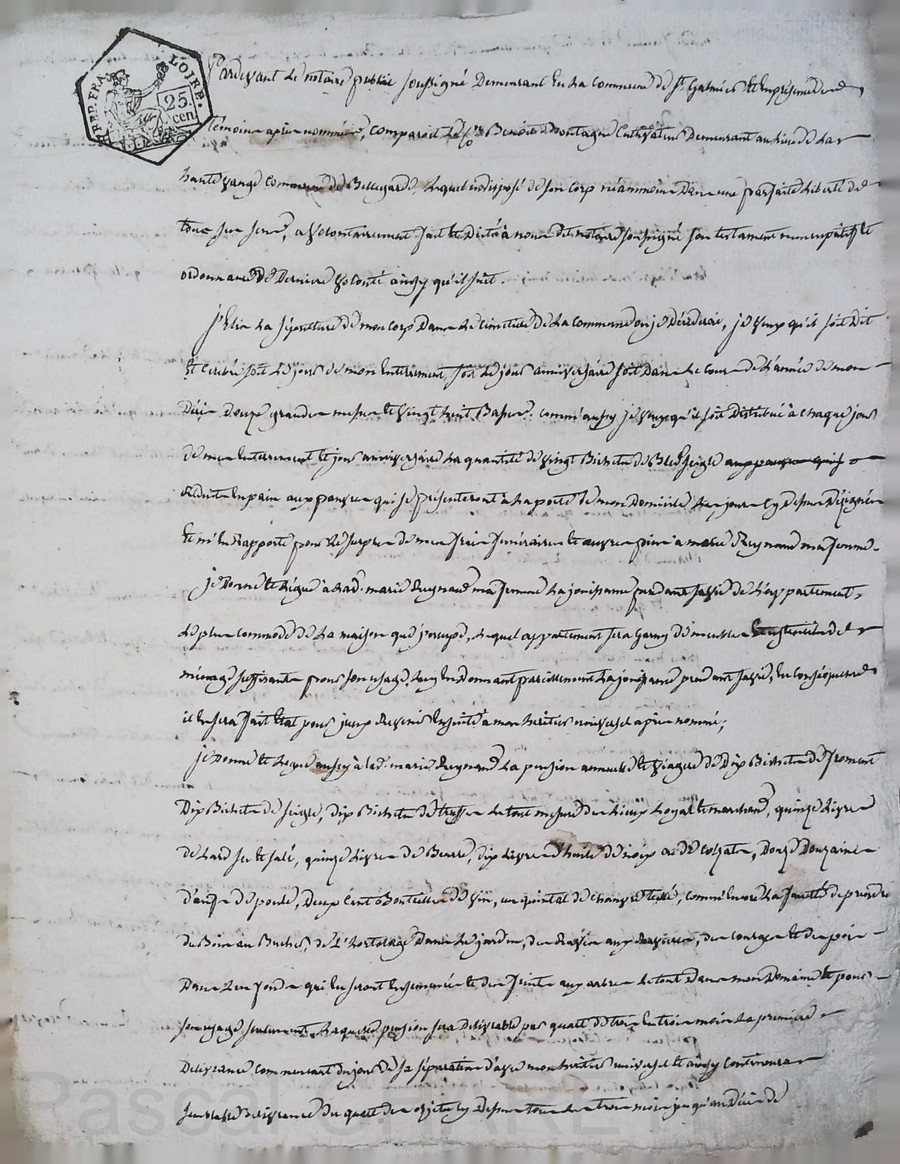 REP. FRA. LOIRE. 25. cen
Pardevant le notaire public soussigné demeurant en la commune de St Galmier et en présence des
témoins après nommés, comparoit le Benoit Montagne cultivateur demeurant au lieu de la
haute commune de Bellegarde, lequel indisposé de son corp néammoins dans une parfaite liberté de
tous ses sens, a volontairement fait et dicté à nous dit notaire soussigné son testament nuncupatif et
ordonnance de derniere volonté ainsy qu'il suit.
j'Elis la sépulture de mon corp dans le cimetiere de la commune ou je décéderai, je veux qu'il soit dit
et celebré soit le jour de mon enterrement, soit le jour anniversaire soit dans le cour de l'année de mon
décès, douze grandes messes et vingt huit basses. comm'aussy je veux qu'il soit distribué à chaque jour
de mon enterrement et jour anniversaire la quantité de vingt Bichets de Bled seigle aux pauvres qui se
réduite en pain aux pauvres qui se présenteront à la porte de mon domicile, les jours cy dessus désignés
et m'en rapporte pour le surplus de mes frais funeraires et œuvres pies à marie Reynaud ma femme.
je donne et légue à lad. marie Reynaud ma femme la jouissance pendant sa vie de l'appartement
le plus commode de la maison que j'occupe, lequel appartement sera garny de meubles et ustensiles de
ménage suffisants pour son usage, luy en donnant pareillement la jouissance pendant sa vie, en conséquence
il en sera fait état pour iceux revenir ensuite à mon héritier universel après nommé;
je donne et legue aussy à lad. marie Reynaud la pension annuelle et viagere de dix Bichets de froment
dix Bichets de seigle, dix Bichets de truffes le tout mesure du lieu loyal et marchand, quinze livres
de lard sec et salé, quinze livres de Beurre, dix livres d'huile de noix ou de colzat, douze douzaines
d'œufs de poule, deux cent Bouteilles de vin, un quintal de chanvre teillé, comm'encore la faculté de prendre
du Bois au Bucher, de l'hortolage dans le jardin, des raisins aux vignes, des courges et des pois
dans les fonds qui en seront ensemencés et des fruits aux arbres le tout dans mon domaine et pour
son usage seulement. laquelle pension sera délivrable par quart de trois en trois mois la premiere
délivrance commencant du jour de sa séparation d'avec mon héritier universel et ainsy continuera
semblable délivrance du quart des objets cy dessus tous les trois mois jusqu'au décès de